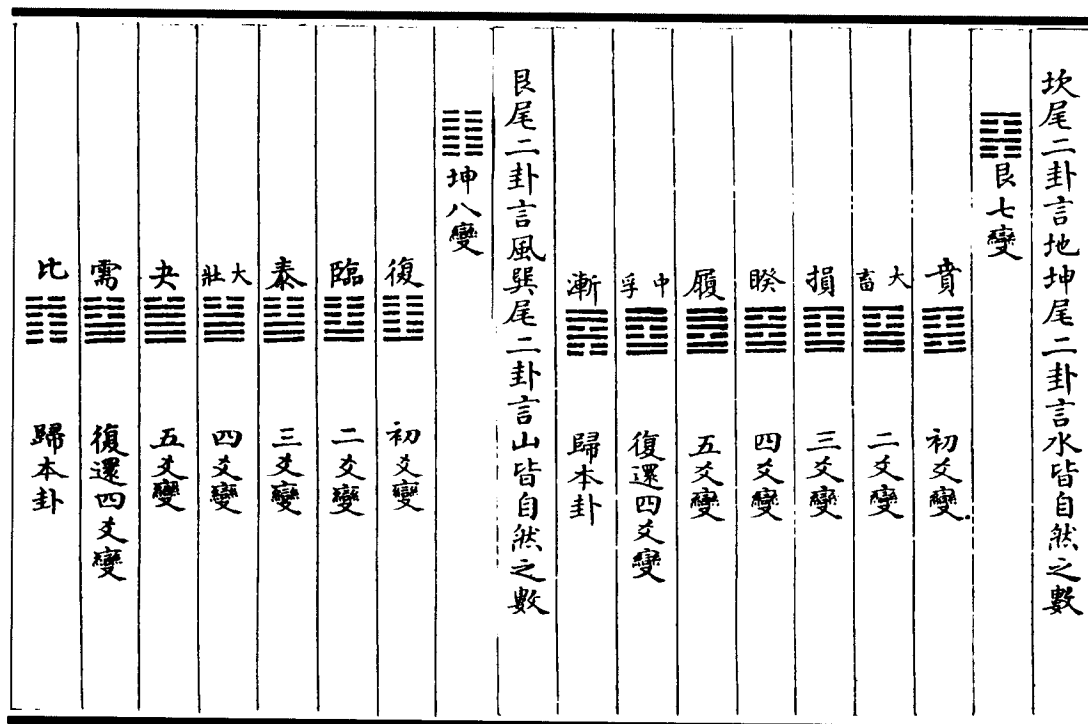 坎尾二卦言地坤尾二卦言水皆自然之數
艮七變
賁 初爻變
大畜 二爻變
損 三爻變
睽 四爻變
履 五爻變
中孚 復還四爻變
漸 歸本卦
艮尾二卦言風巽尾二卦言山皆自然之數
坤八變
復 初爻變
臨 二爻變
泰 三爻變
大壯 四爻變
夬 五爻變
需 復還四爻變
比 歸本卦